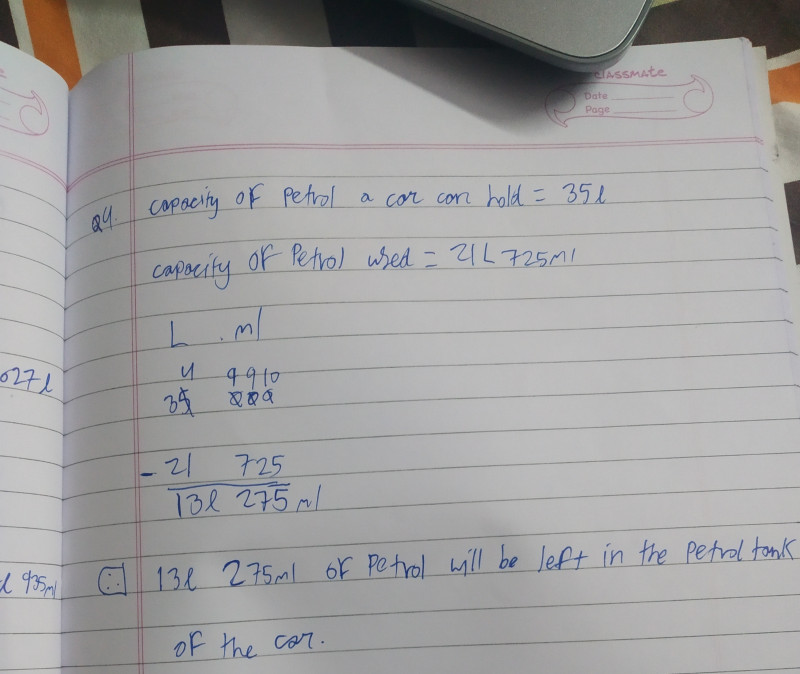 classmate
Date
Page
Q4. capacity of petrol a car can hold = 35l
capacity of Petrol used = 21L 725ml
L . ml
4 9910
35 000
- 21 725
13l 275 ml
027l
∴ 13l 275ml of Petrol will be left in the petrol tank
l 935ml
of the car.